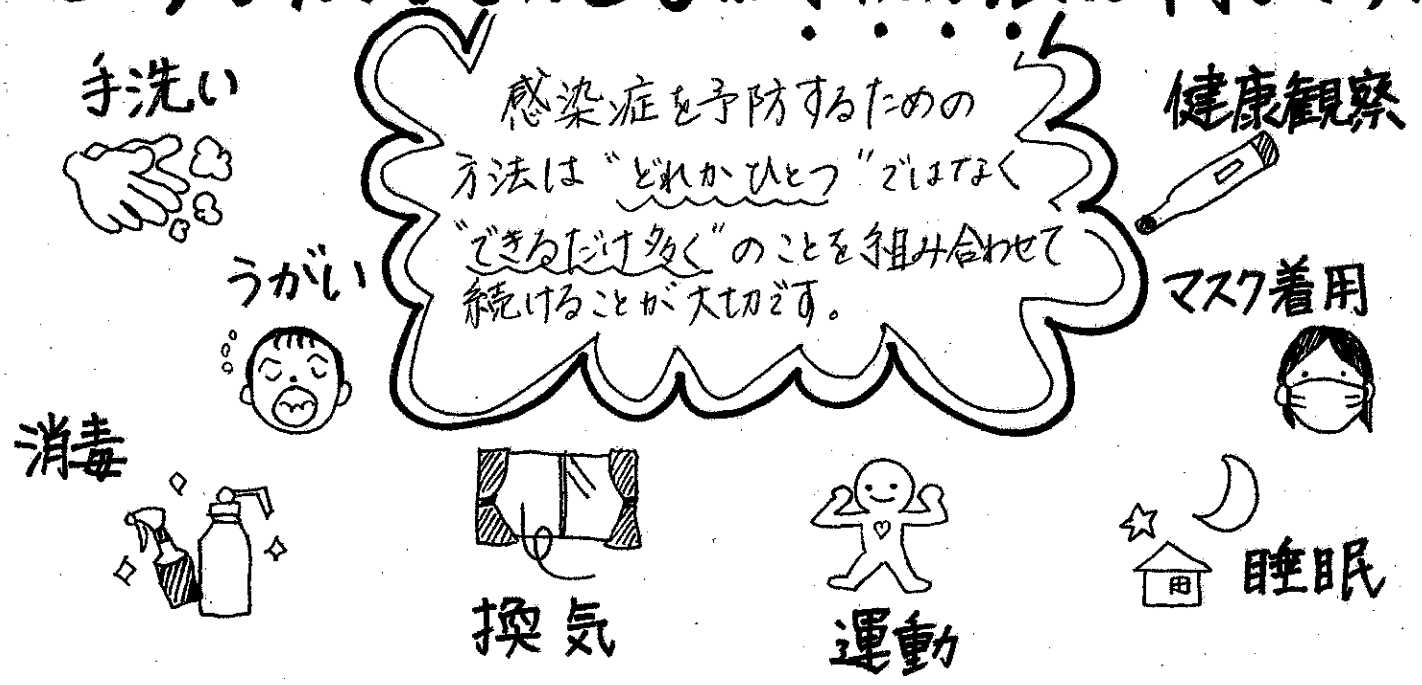 手洗い
健康観察
感染症を予防するための
方法は“どれかひとつ”ではなく
“できるだけ多く”のことを組み合わせて
続けることが大切です。
うがい
マスク着用
消毒
換気
運動
睡眠